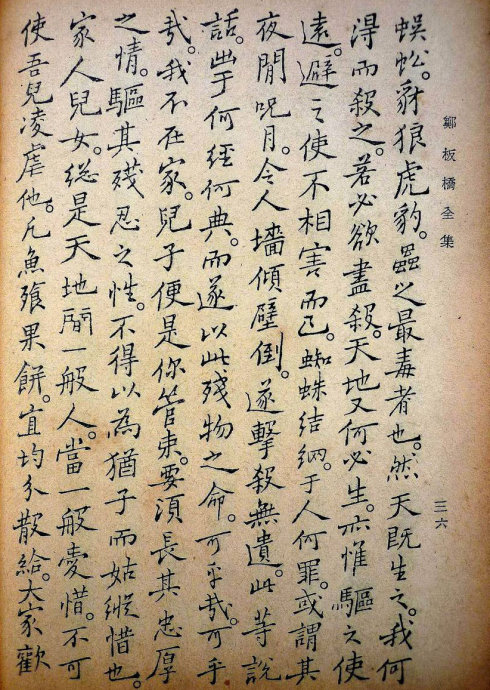 鄭板橋全集
三六
蜈蚣。豺狼虎豹。蟲之最毒者也。然天既生之。我何
得而殺之。若必欲盡殺。天地又何必生。亦惟驅之使
遠。避之使不相害而已。蜘蛛結網。于人何罪。或謂其
夜間呪月。令人墻傾壁倒。遂擊殺無遺。此等說
話。出于何經何典。而遂以此殘物之命。可乎哉。可乎
哉。我不在家。兒子便是你管束。要須長其忠厚
之情。驅其殘忍之性。不得以為猶子而姑縱惜也。
家人兒女。総是天地間一般人。當一般愛惜。不可
使吾兒凌虐他。凡魚飧果餅。宜均分散給。大家歡